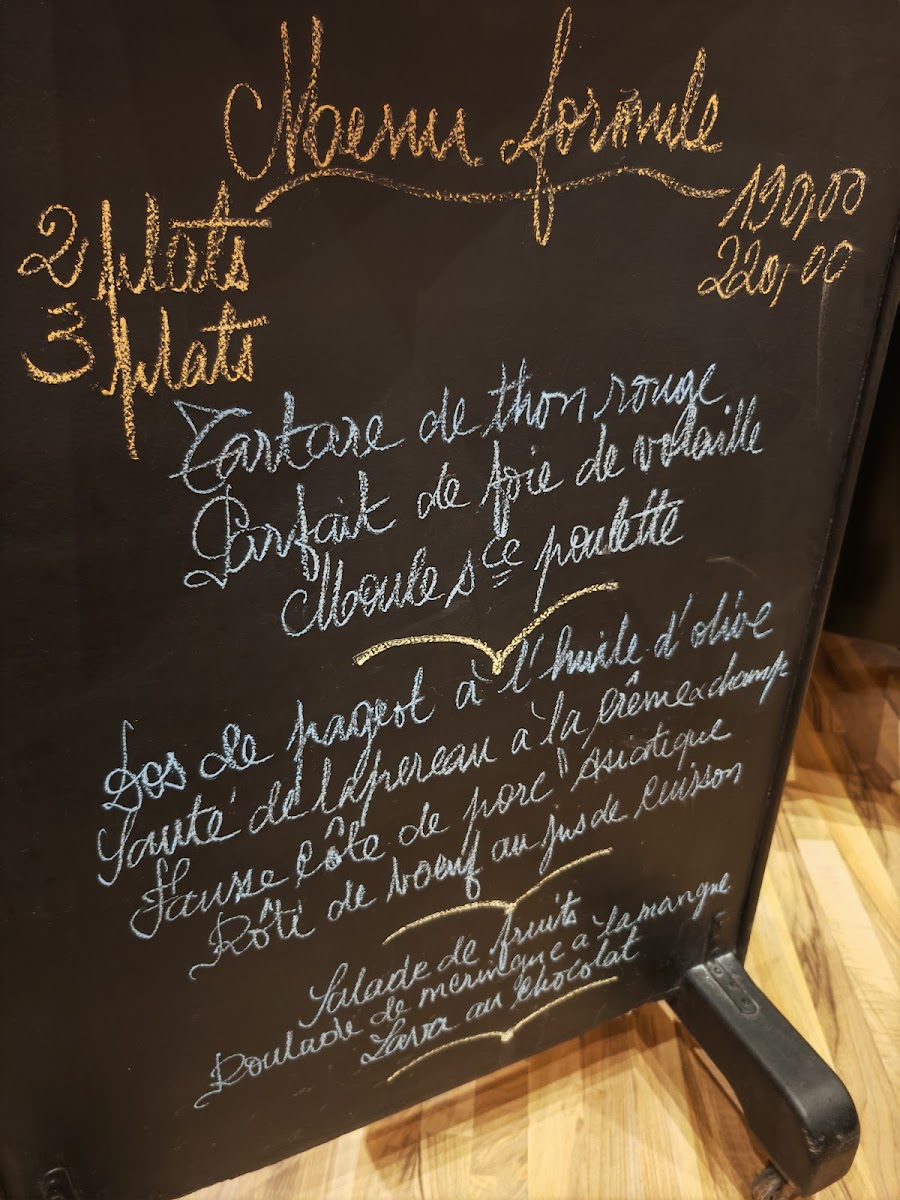 Menu formule
2 plats 190,00
3 plats 220,00
Tartare de thon rouge
Parfait de foie de volaille
Moule sce poulette
Dos de pageot à l'huile d'olive
Sauté de lapereau à la crème champ
Fausse côte de porc "Asiatique
Rôti de bœuf au jus de cuisson
Salade de fruits
Roulade de meringue à la mangue
Lava au chocolat